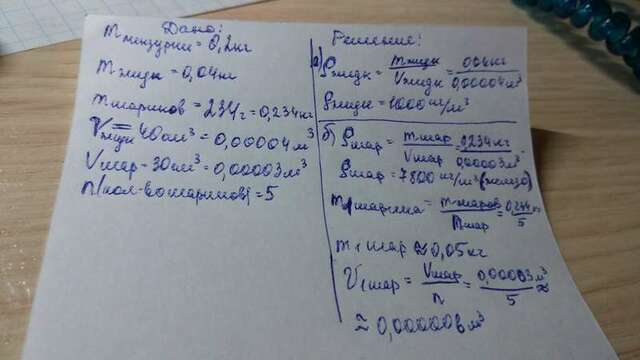 Дано:
m мензурки = 0,2 кг
m жидк = 0,04 кг
m шариков = 234 г = 0,234 кг
V жидк = 40 см³ = 0,00004 м³
V шар - 30 см³ = 0,00003 м³
n (кол-во шариков) = 5
Решение:
а) ρ жидк = m жидк / V жидк = 0,04 кг / 0,00004 м³
ρ жидк = 1000 кг/м³
б) ρ шар = m шар / V шар = 0,234 кг / 0,00003 м³
ρ шар = 7800 кг/м³ (железо)
m 1 шарика = m шаров / n шар = 0,234 / 5
m 1 шар ≈ 0,05 кг
V 1 шар = V шар / n = 0,00003 м³ / 5 ≈
≈ 0,000006 м³